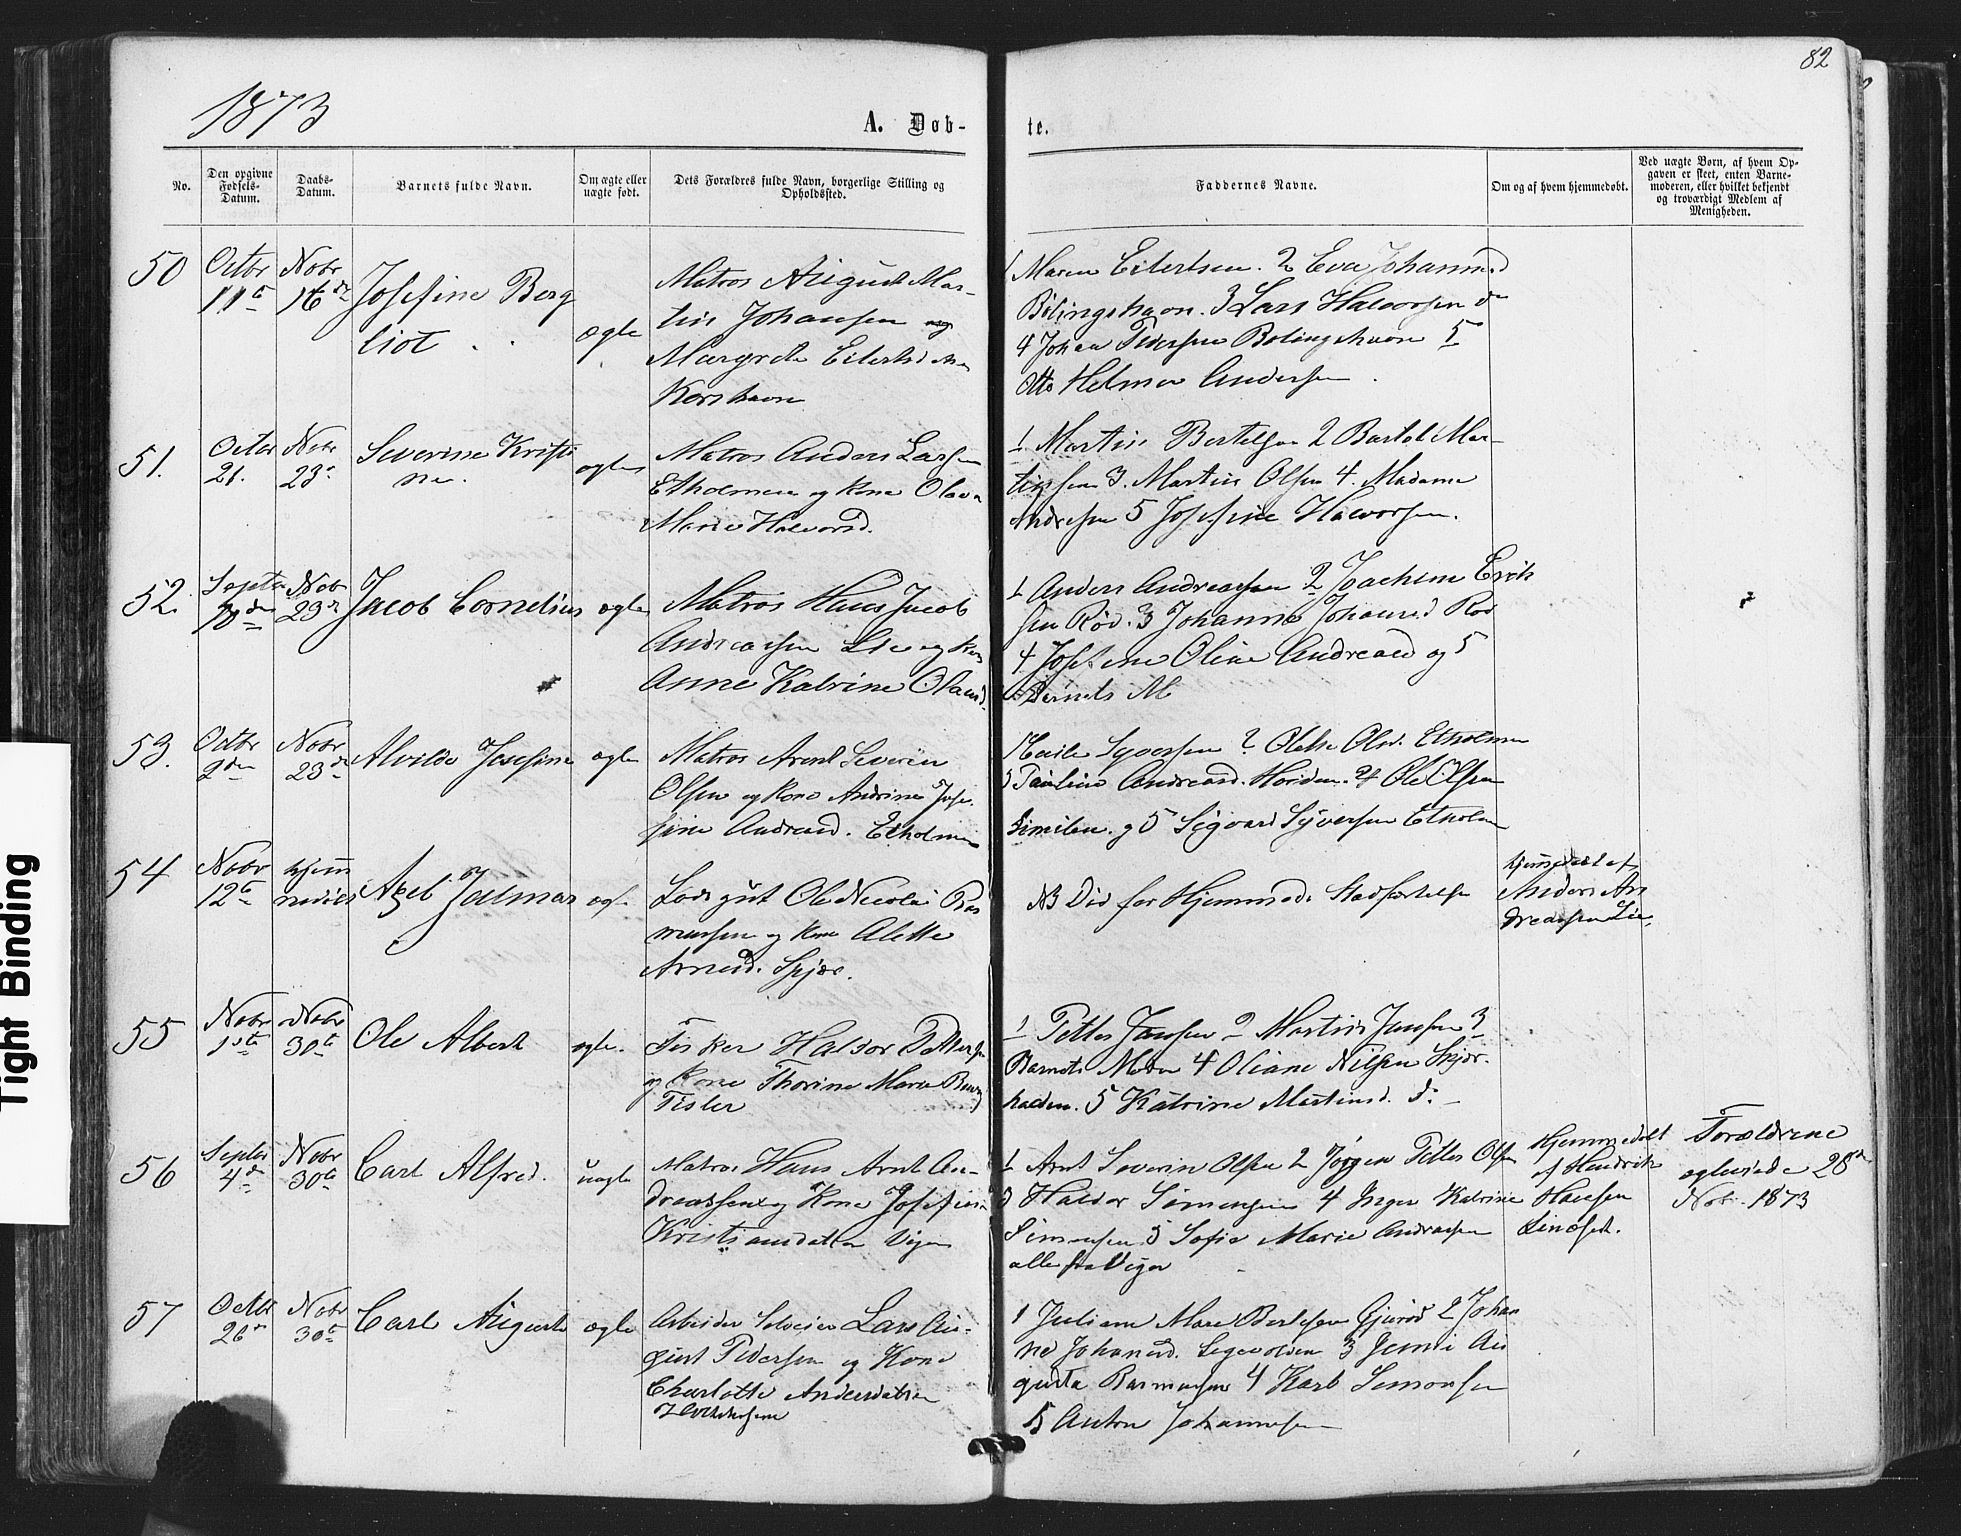 82
1873
A. Døb-
te.
No.
Den opgivne
Fødsels-
Datum.
Daabs-
Datum.
Barnets fulde Navn.
Om ægte eller
uægte født.
Dets Forældres fulde Navn, borgerlige Stilling og
Opholdssted.
Faddernes Navne.
Om og af hvem hjemmedøbt.
Ved uægte Børn, af hvem Op-
gaven er skeet, enten Barne-
moderen, eller hvilket bekjendt
og troværdigt Medlem af
Menigheden.
50
Octbr
11te
Novbr
16de
Josefine Berg
liot
ægte
Matros August Mar-
tin Johansen og
Margrethe Eilertsd
Korshavn
1 Maren Eilertsen. 2 Eva Johannesd
Bølingshavn. 3 Lars Halvorsen do
4 Johan Pedersen Bølingshavn 5
Otto Helmer Andersen
51.
Octbr
21.
Novbr
23de
Severine Kristi
ne.
ægte
Matros Anders Larsen
Etholmen og Kone Olava
Marie Halvorsd.
1 Martin Bertelsen 2 Bartol Mar-
tinsen 3. Martin Olsen 4. Madame
Andresen 5 Josefine Halvorsen.
52.
Septbr
10de
Novbr
23de
Jacob Cornelius
ægte
Matros Hans Jacob
Andreassen Lie og Kone
Anne Katrine Olausd.
1 Anders Andreassen 2 Joachim Erik
sen Rød. 3 Johanne Johansd Rød
4 Josefine Oline Andreasd og 5
Barnets M
53.
Octbr
2den
Novbr
23de
Alvilde Josefine
ægte
Matros Arent Severin
Olsen og Kone Andrine Jose-
fine Andreasd. Etholmen
Syversen 2 Olette Olsd. Etholmen
3 Pauline Andreasd. 4 Ole Olsen
og 5 Sigvard Syversen Etholm
54
Novbr
12te
hjem
medøbt
Axel Jalmar
ægte
Lodsgut Ole Nicolai Ras
mussen og Kone Alette
Arnesd. Spjær.
NB Død før Hjemmed. Stadfæstelse
hjemmedøbt af
Anders An
dreassen Lie.
55
Novbr
1ste
Novbr
30te
Ole Albert
ægte.
Fisker Halvor Pettersen
og Kone Thorine Marie
Tisler
1 Petter Jansen 2 Martin Jansen 3
Barnets Moder 4 Oliane Nilsen Skjær-
halden. 5 Katrine Martinsd. do
56
Septbr
4de
Novbr
30te
Carl Alfred.
uægte
Matros Hans Arnt An-
dreassen og Kone Josefine
Kristiansdatter Viger
1 Arnt Severin Olsen 2 Jørgen Petter Olsen
3 Halvor Simensen 4 Inger Katrine
Simensen 5 Sofie Marie Andreassen
alle fra Viger
Hjemmedøbt
af Hendrik
Hansen
Forældrene
ægteviede 28de
Nobr. 1873
57
Octbr
26de
Novbr
30te
Carl August
ægte
Arbeider Selveier Lars Au-
gust Pedersen og Kone
Charlotte Andersdatter
1 Juliane Marie Bertelsen Gjurød 2 Johan
ne Johansd. 3 Jensine Au
gusta Rasmussen 4 Karl Simonsen
5 Anton Johannesen
Tight Binding